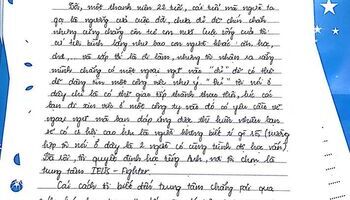 Tôi, một thanh niên 22 tuổi, cái tuổi mà người ta
gọi là ngưỡng cửa cuộc đời, chưa đủ để chín chắn
nhưng cũng chẳng còn trẻ con nữa. Cuộc sống của tôi
cứ thế bình lặng như bao con người khác cứ học,
chơi,... và rồi tôi đi làm, nhưng tôi nhận ra rằng
mình chẳng có một ngoại ngữ nào "đủ" để có thể
xin được một công việc như ý. "đủ" tôi nói ở
đây chỉ là có thể giao tiếp thành thạo thôi, lúc
bạn đi xin vào ở một công ty nào đó có yêu cầu về
ngoại ngữ mà bạn đáp ứng được thì hiển nhiên bạn
sẽ có cơ hội cao hơn là người không biết gì rồi (trường
hợp tôi nói ở đây là 2 người có cùng trình độ học vấn).
Thế rồi, tôi quyết định học tiếng Anh, nơi tôi chọn là
trung tâm IELTS - Fighter.
Cái cách tôi biết đến trung tâm chẳng phải qua